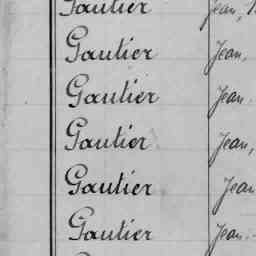 Gautier Jean,
Gautier Jean.
Gautier Jean.
Gautier Jean,
Gautier Jean
Gautier Jean.